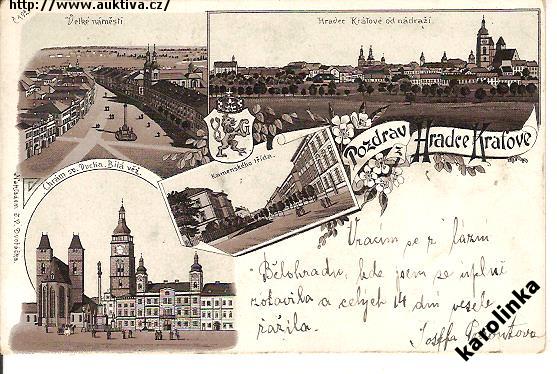 http://www.auktiva.cz/
Velké náměstí
Hradec Králové od nádraží.
Pozdrav
z
Hradce Králové
Komenského třída.
Chrám sv. Ducha. Bílá věž.
Vracím se z lázní
Bělohradu, kde jsem se úplně
zotavila a celých 14 dní vesele
zažila.
karolinka